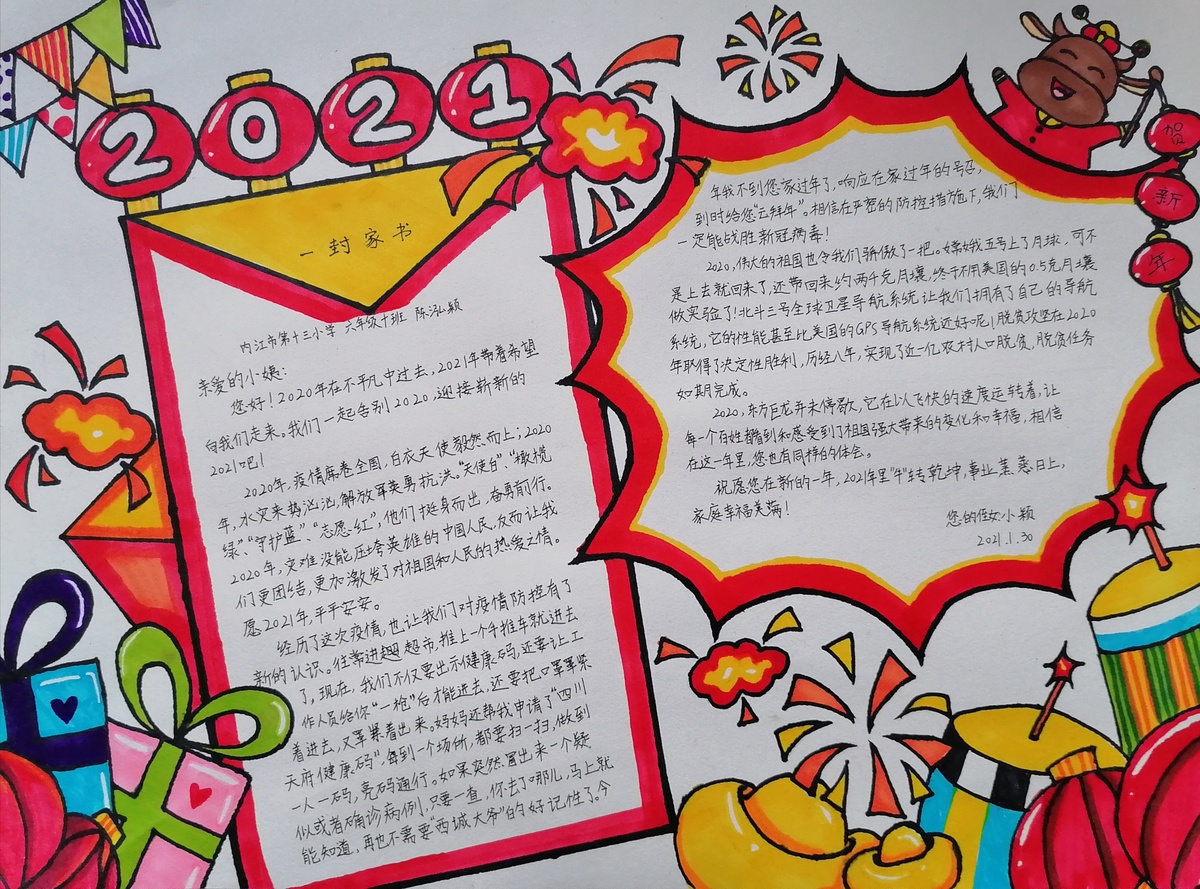 2021
贺
新
年
一封家书
内江市第十三小学 六年级十班 陈泓颖
亲爱的小姨:
您好!2020年在不平凡中过去,2021年带着希望
向我们走来。我们一起告别2020,迎接崭新的
2021吧!
2020年,疫情席卷全国,白衣天使毅然而上;2020
年,水灾来势汹汹,解放军英勇抗洪。“天使白”、“橄榄
绿”、“守护蓝”、“志愿红”,他们挺身而出,奋勇前行。
2020年,灾难没能压垮英雄的中国人民,反而让我
们更团结,更加激发了对祖国和人民的热爱之情。
愿2021年,平平安安。
经历了这次疫情,也让我们对疫情防控有了
新的认识。往常进超市,推上一个手推车就进去
了,现在,我们不仅要出示健康码,还要让工
作人员给你“一枪”后才能进去,还要把口罩罩紧
着进去,又罩紧着出来。妈妈还帮我申请了“四川
天府健康码”每到一个场所,都要扫一扫,做到
一人一码,亮码通行。如果突然冒出来一个疑
似或者确诊病例,只要一查,你去了哪儿,马上就
能知道,再也不需要“西城大爷”的好记性了。今
年我不到您家过年了,响应在家过年的号召,
到时给您“云拜年”。相信在严密的防控措施下,我们
一定能战胜新冠病毒!
2020,伟大的祖国也令我们骄傲了一把。嫦娥五号上了月球,可不
是上去就回来了,还带回来约两千克月壤,终于不用美国的0.5克月壤
做实验了!北斗三号全球卫星导航系统让我们拥有了自己的导航
系统,它的性能甚至比美国的GPS导航系统还好呢!脱贫攻坚在2020
年取得了决定性胜利,历经八年,实现了近一亿农村人口脱贫,脱贫任务
如期完成。
2020,东方巨龙并未停歇,它在以飞快的速度运转着,让
每一个百姓瞧到和感受到了祖国强大带来的变化和幸福,相信
在这一年里,您也有同样的体会。
祝愿您在新的一年,2021年里“牛”转乾坤,事业蒸蒸日上,
家庭幸福美满!
您的侄女小颖
2021.1.30